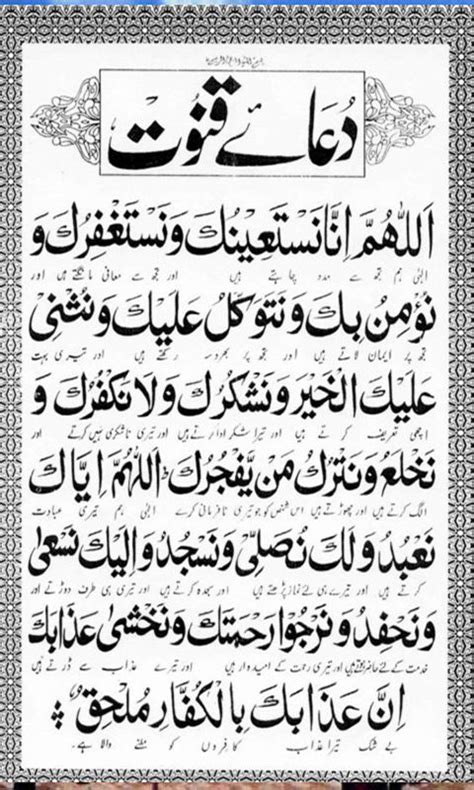 دُعائے قنوت
اَللّٰهُمَّ اِنَّا نَسْتَعِينُكَ وَنَسْتَغْفِرُكَ وَ
الٰہی ہم تجھ سے مدد چاہتے ہیں اور تجھ سے معافی مانگتے ہیں اور
نُؤْمِنُ بِكَ وَنَتَوَكَّلُ عَلَيْكَ وَنُثْنِيْ
تجھ پر ایمان لاتے ہیں اور تجھ پر بھروسہ رکھتے ہیں اور تیری بہت
عَلَيْكَ الْخَيْرَ وَنَشْكُرُكَ وَلَا نَكْفُرُكَ وَ
اچھی تعریف کرتے ہیں اور تیرا شکر ادا کرتے ہیں اور تیری ناشکری نہیں کرتے اور
نَخْلَعُ وَنَتْرُكُ مَنْ يَّفْجُرُكَ اَللّٰهُمَّ اِيَّاكَ
الگ کرتے ہیں اور چھوڑتے ہیں اس شخص کو جو تیری نافرمانی کرے الٰہی ہم تیری عبادت
نَعْبُدُ وَلَكَ نُصَلِّيْ وَنَسْجُدُ وَاِلَيْكَ نَسْعٰى
کرتے ہیں اور تیرے ہی لئے نماز پڑھتے ہیں اور سجدہ کرتے ہیں اور تیری ہی طرف دوڑتے اور
وَنَحْفِدُ وَنَرْجُوْا رَحْمَتَكَ وَنَخْشٰى عَذَابَكَ
خدمت کے لئے حاضر ہوتے ہیں اور تیری رحمت کے امیدوار ہیں اور تیرے عذاب سے ڈرتے ہیں
اِنَّ عَذَابَكَ بِالْكُفَّارِ مُلْحِقٌ
بے شک تیرا عذاب کافروں کو ملنے والا ہے۔